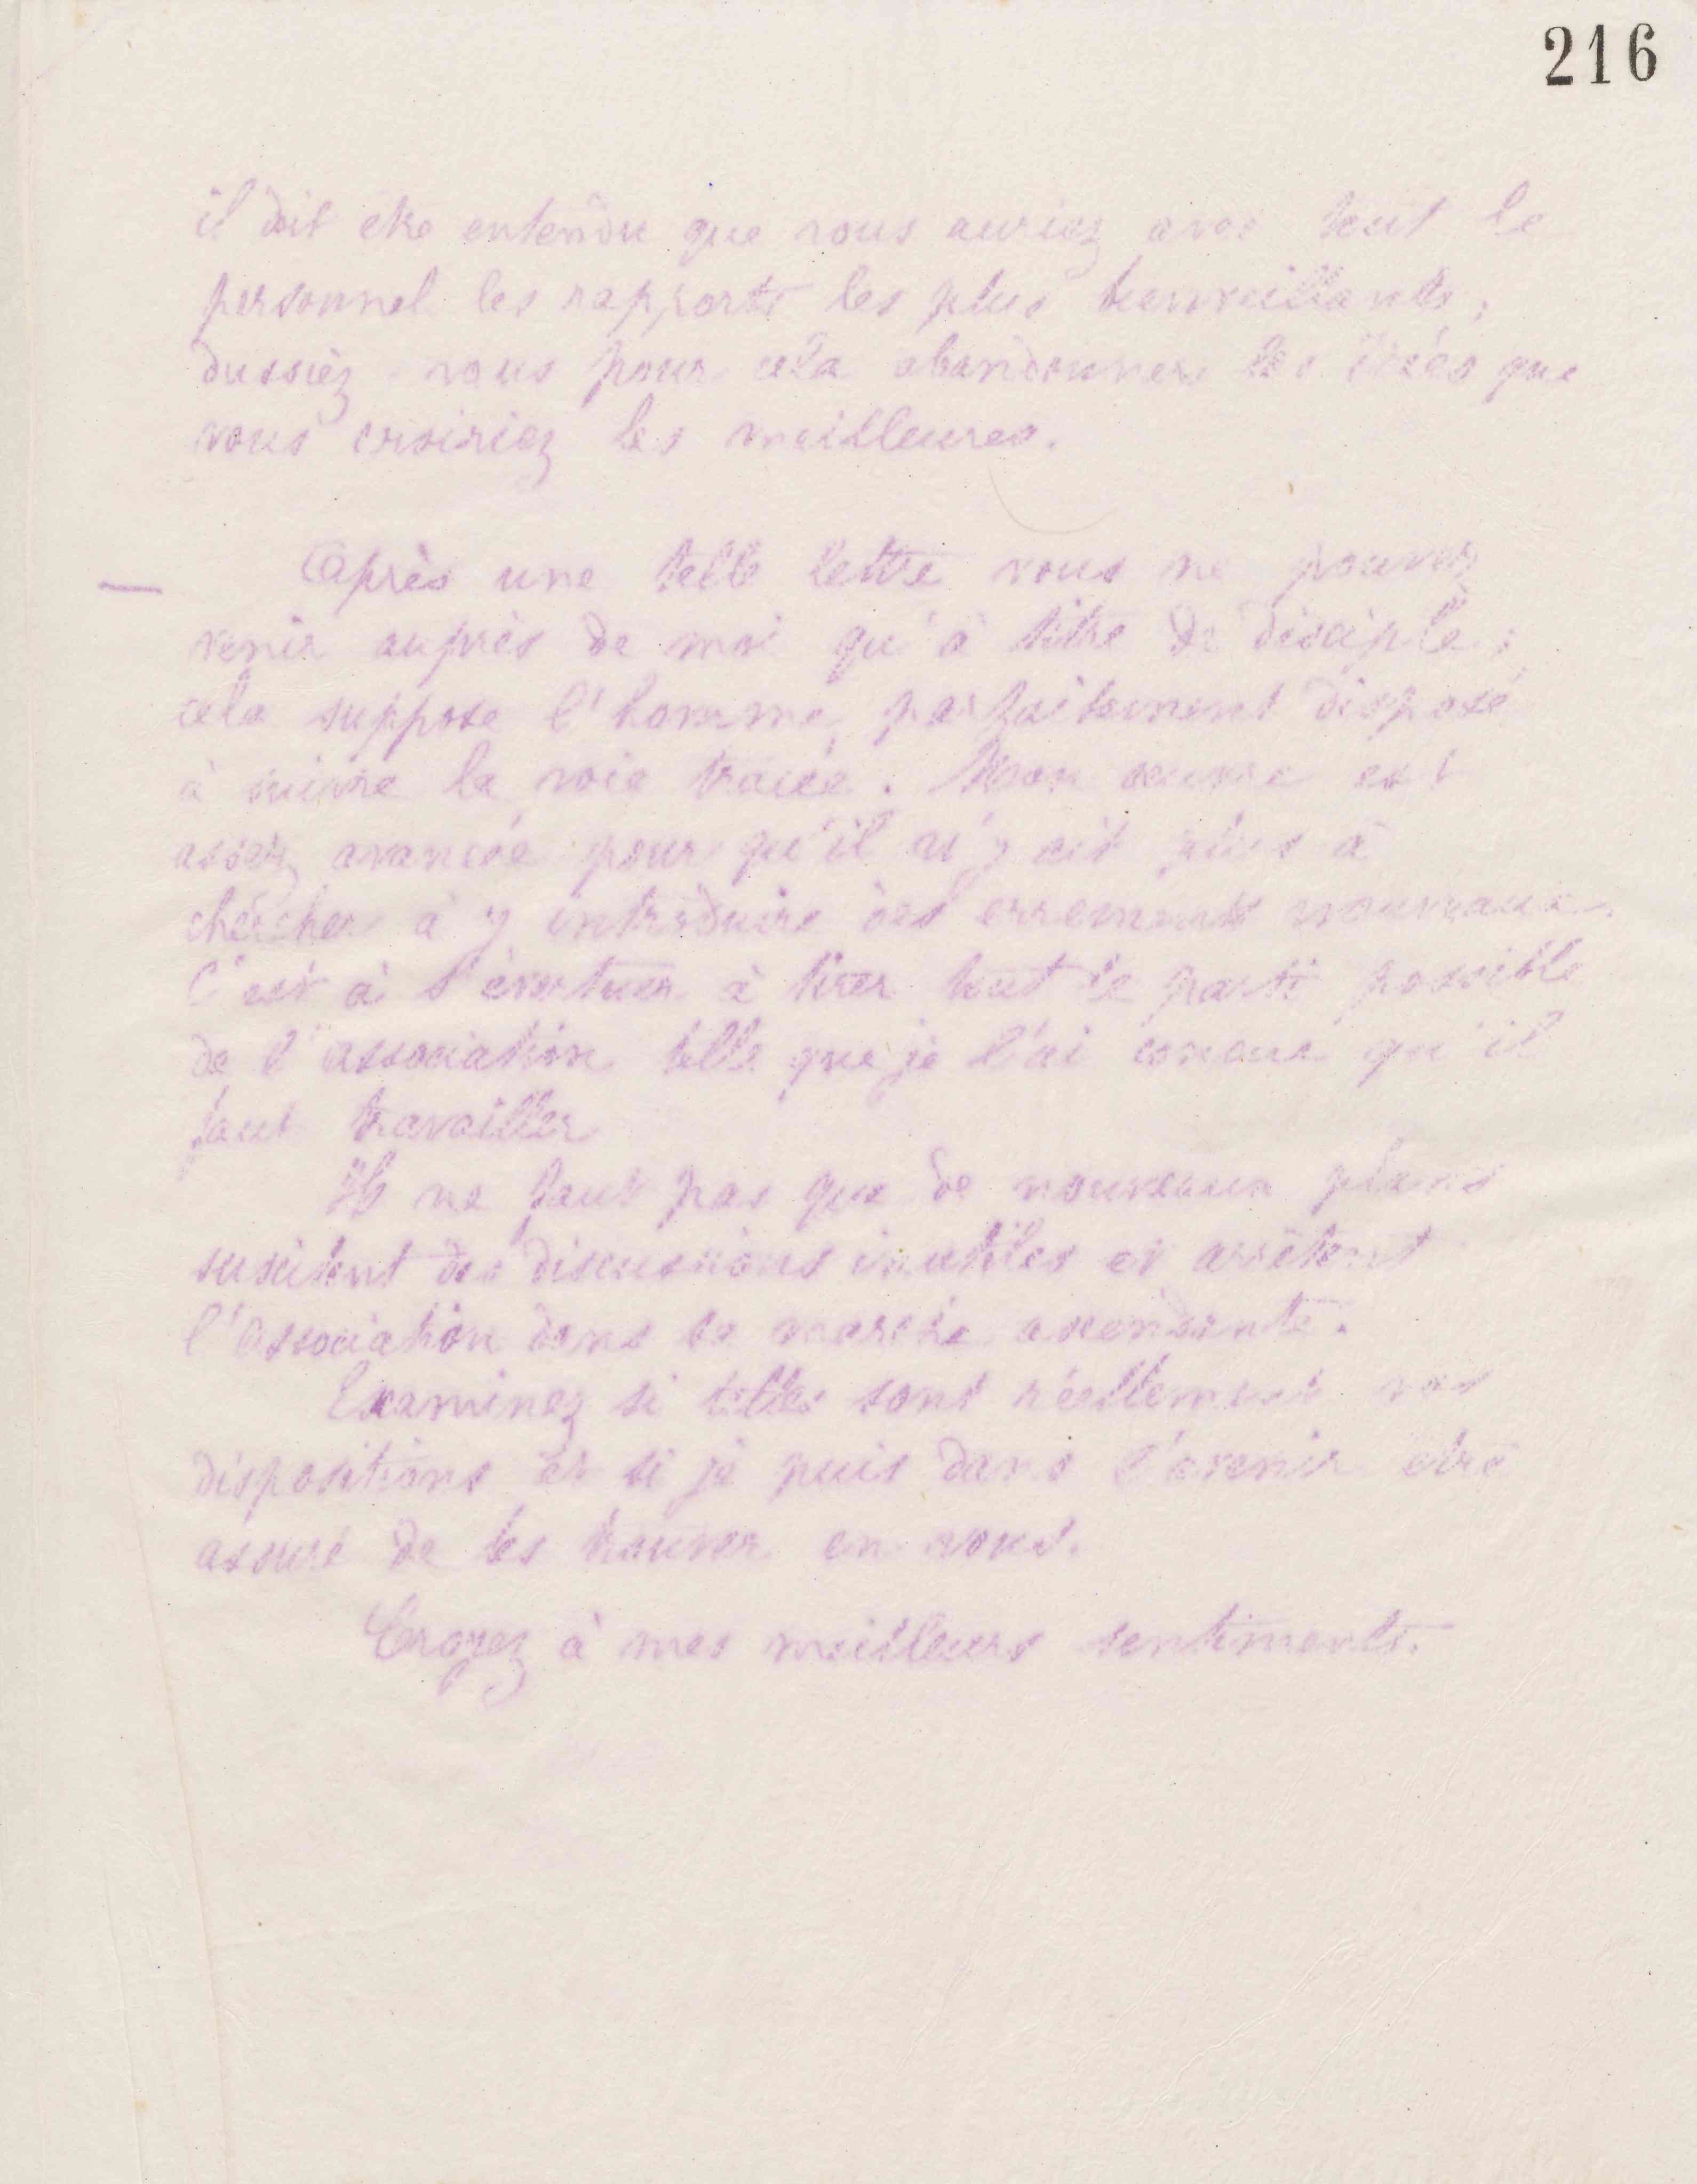 216
il doit être entendu que vous auriez avec tout le
personnel les rapports les plus bienveillants,
dussiez-vous pour cela abandonner les idées que
vous croiriez les meilleures.
Après une telle lettre vous ne pouvez
venir auprès de moi qu'à titre de disciple;
cela suppose l'homme parfaitement disposé
à suivre la voie tracée. Mon œuvre est
assez avancée pour qu'il n'y ait plus à
chercher à y introduire des errements nouveaux.
C'est à s'évertuer à tirer tout le parti possible
de l'association telle que je l'ai conçue qu'il
faut travailler
Il ne faut pas que de nouveaux plans
suscitent des discussions inutiles et arrêtent
l'Association dans sa marche ascendante.
Examinez si telles sont réellement vos
dispositions et si je puis dans l'avenir être
assuré de les trouver en vous.
Croyez à mes meilleurs sentiments.